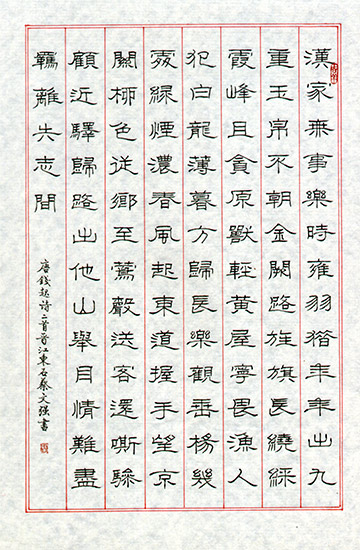 漢家無事樂時雍羽獵年年出九
重玉帛不朝金闕路旌旗長繞綵
霞峰且貪原獸輕黃屋寧畏漁人
犯白龍薄暮方歸長樂觀垂楊幾
處綠煙濃春風起東道握手望京
關柳色從鄉至鶯聲送客還嘶驂
顧近驛歸路出他山舉目情難盡
羈離失志間
唐錢起詩二首晉江東石蔡文强書